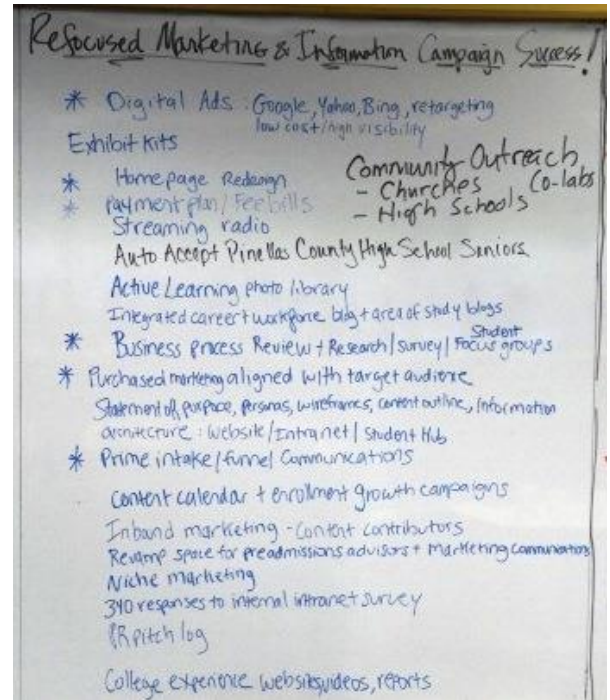 Refocused Marketing & Information Campaign Success!
* Digital Ads: Google, Yahoo, Bing, retargeting
low cost/high visibility
Exhibit Kits
* Homepage Redesign
* Payment plan/Fee bills
Streaming radio
Community Outreach
- Churches
- High Schools
Co-labs
Auto Accept Pinellas County High School Seniors
Active Learning photo library
Integrated career + workforce blog + area of study blogs
* Business process Review + Research/survey/Student Focus groups
* Purchased marketing aligned with target audience
Statement of purpose, personas, wireframes, content outline, Information
architecture: website/Intranet/Student Hub
* Prime intake/funnel Communications
Content calendar + enrollment growth campaigns
Inbound marketing - Content contributors
Revamp space for preadmissions advisors + Marketing Communications
Niche marketing
340 responses to internal intranet survey
PR pitch log
College experience websites, videos, reports